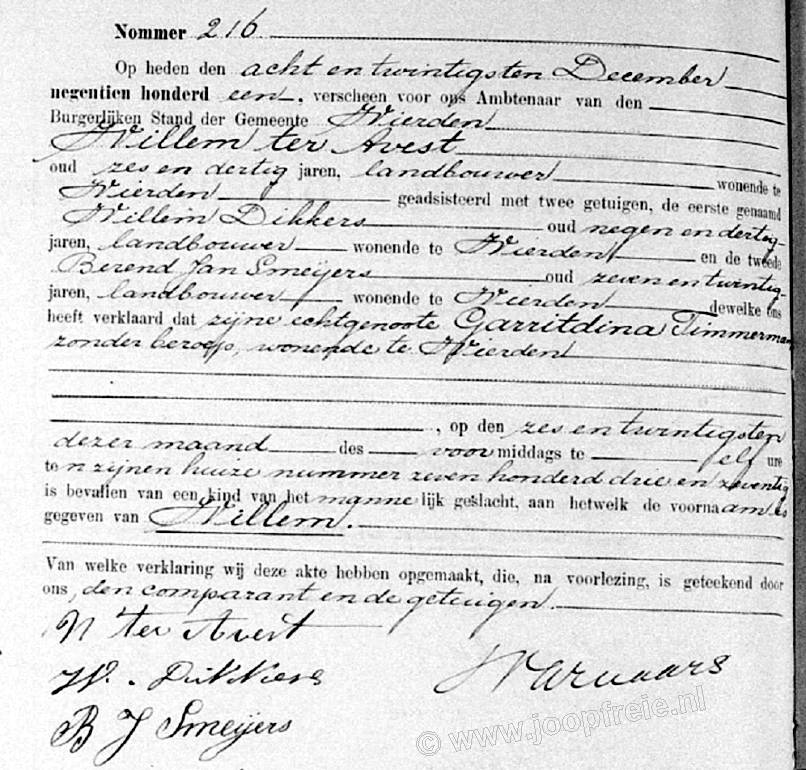 Nommer 216
Op heden den acht en twintigsten December
negentien honderd een, verscheen voor ons Ambtenaar van den
Burgerlijken Stand der Gemeente Wierden
Willem ter Avest
oud zes en dertig jaren, landbouwer wonende te
Wierden geadsisteerd met twee getuigen, de eerste genaamd
Willem Dikkers oud negen en dertig
jaren, landbouwer wonende te Wierden en de tweede
Berend Jan Smeijers oud zeven en twintig
jaren, landbouwer wonende te Wierden dewelke ons
heeft verklaard dat zijne echtgenoote Garritdina Timmerman
zonder beroep, wonende te Wierden
, op den zes en twintigsten
dezer maand des voor middags te elf ure
ten zijnen huize nummer zeven honderd drie en zeventig
is bevallen van een kind van het mannelijk geslacht, aan hetwelk de voornaam is
gegeven van Willem.
Van welke verklaring wij deze akte hebben opgemaakt, die, na voorlezing, is geteekend door
ons, den comparant en de getuigen.
W ter Avest
W. Dikkers
B J Smeijers
© www.joopfreie.nl